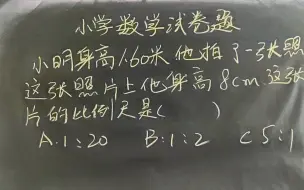 小学数学试卷题
小明身高1.60米他拍了一张照
这张照片上他身高8cm 这张
片的比例尺是( )
A.1:20 B:1:2 C 5:1